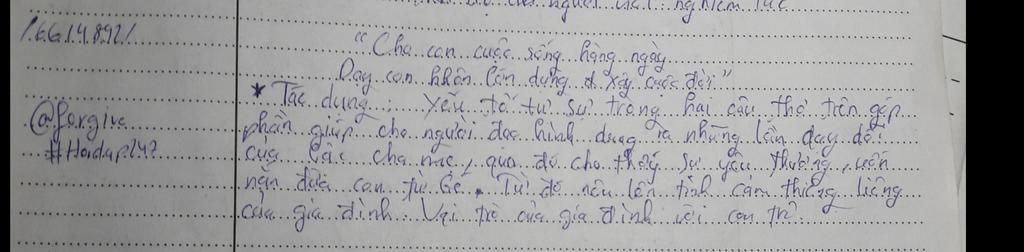 người nghiêm túc
1.6.6.1.4.8.9.2.1
"Cha con cuộc sống hàng ngày
Dạy con khôn lớn dựng xây cuộc đời"
* Tác dụng: Yếu tố tự sự trong hai câu thơ trên góp
@forgive
phần giúp cho người đọc hình dung ra những lần dạy dỗ
#Hoidap247
của các cha mẹ, qua đó cho thấy sự yêu thương, uốn
nắn đứa con từ bé. Từ đó nêu lên tình cảm thiêng liêng
của gia đình. Vai trò của gia đình với con trẻ.